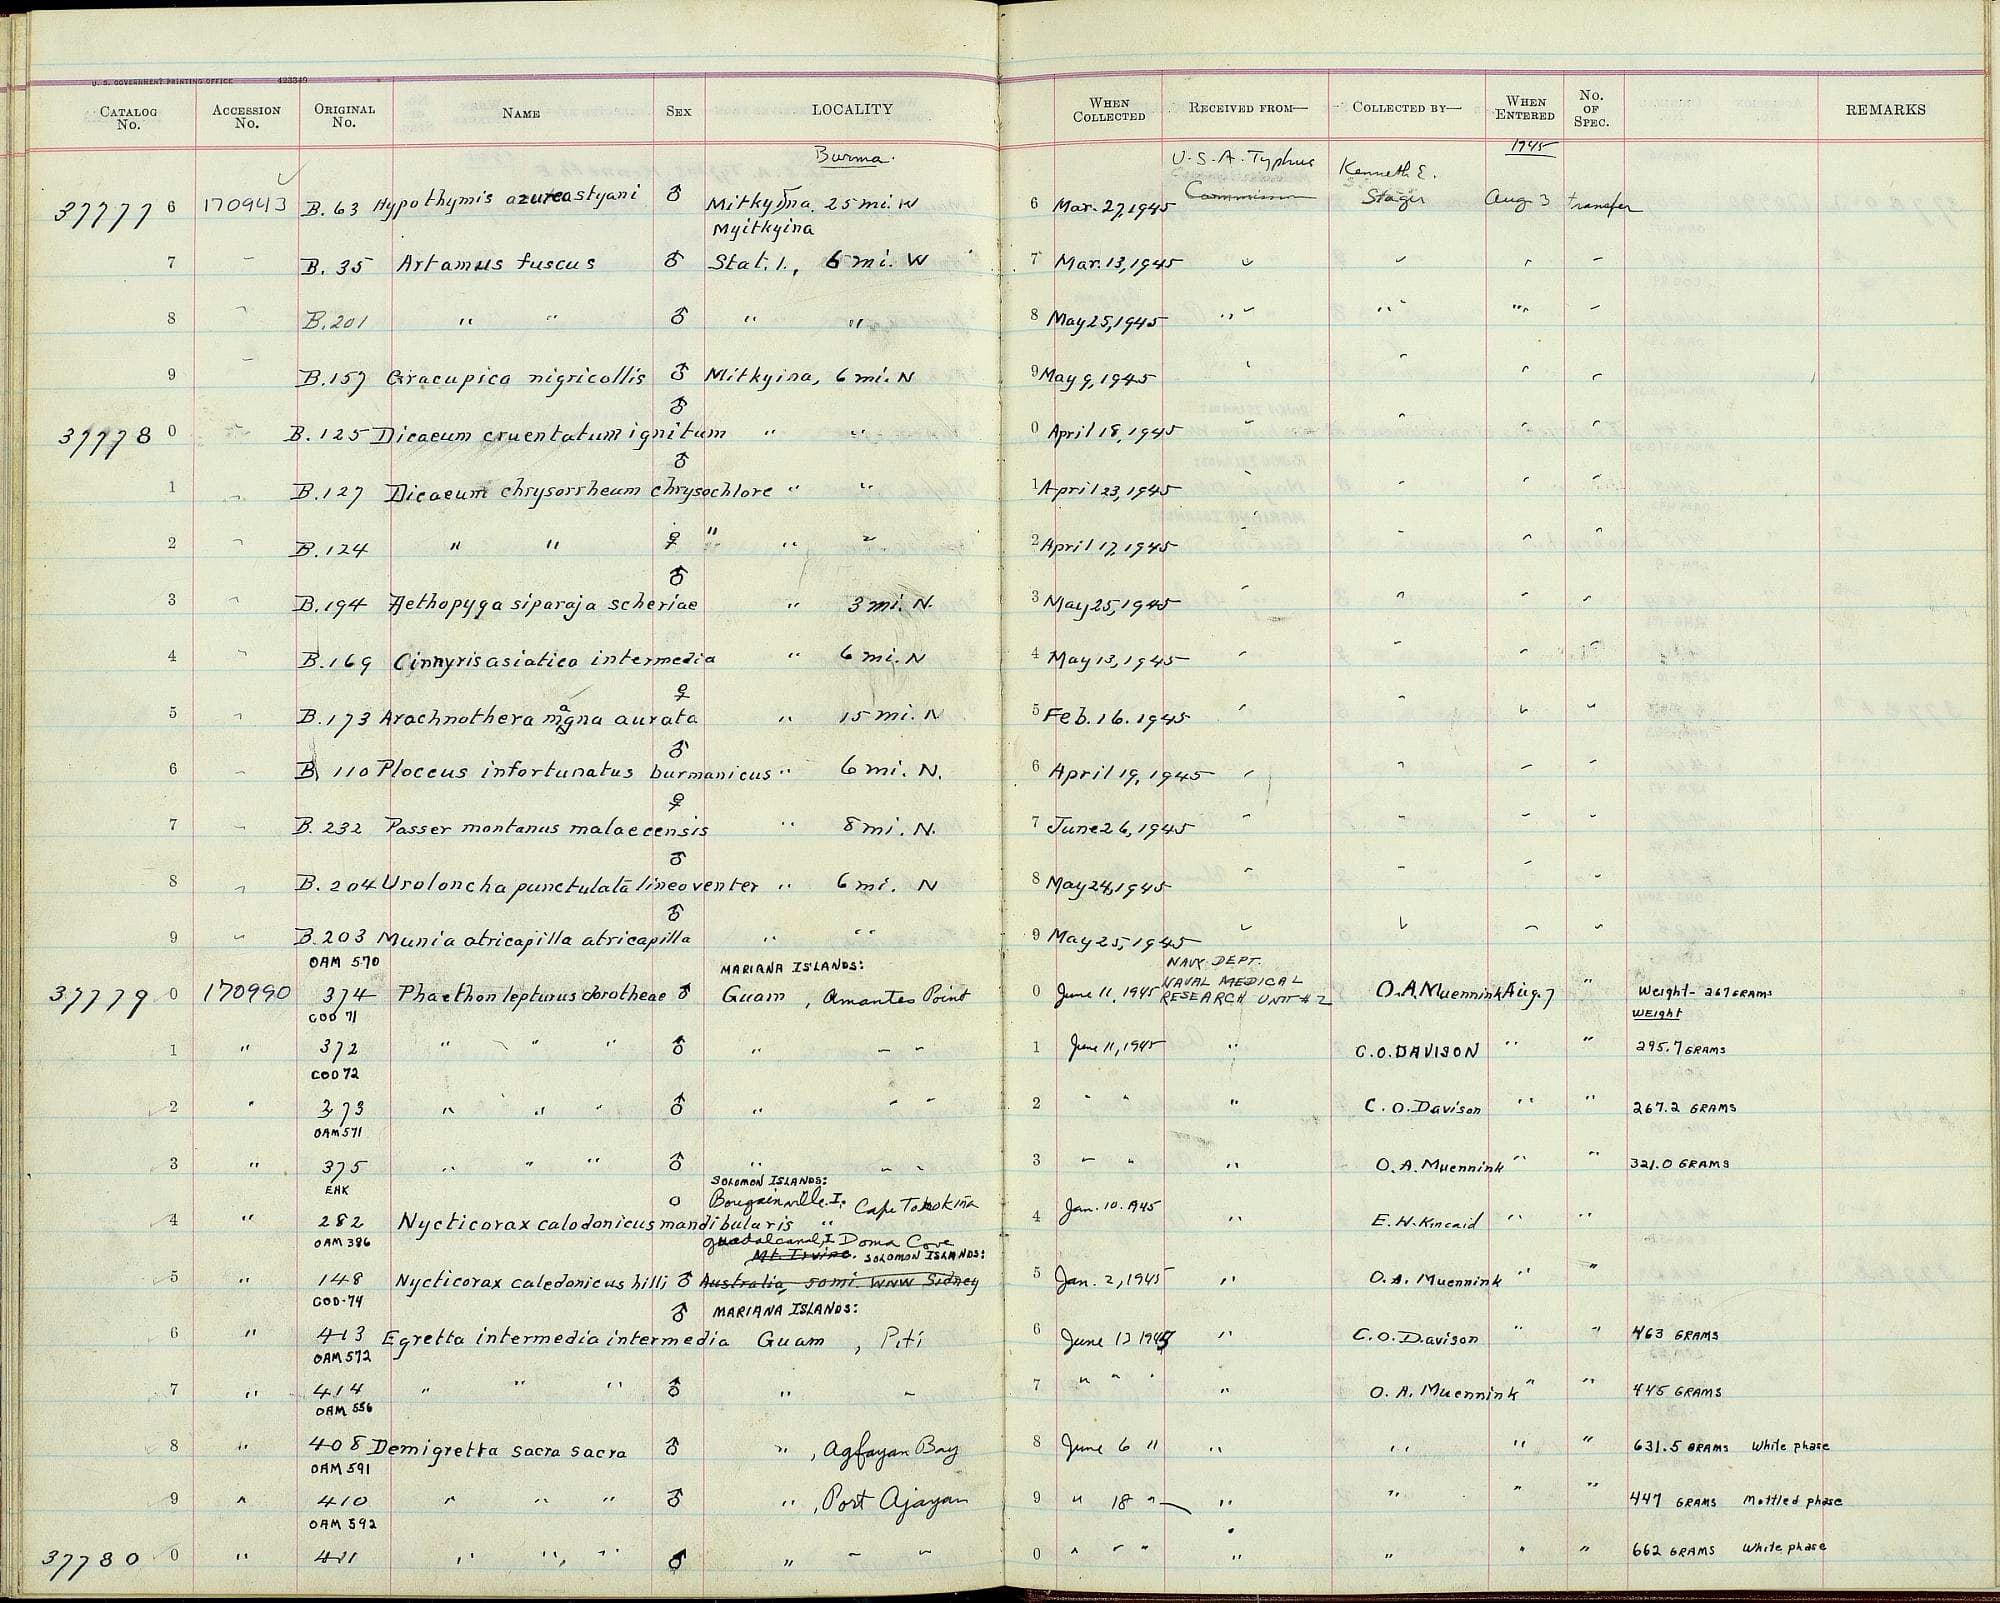 U. S. GOVERNMENT PRINTING OFFICE 423349
CATALOG No. ACCESSION No. ORIGINAL No. NAME SEX LOCALITY WHEN COLLECTED RECEIVED FROM— COLLECTED BY— WHEN ENTERED No. OF SPEC. REMARKS
Burma. U.S.A. Typhus Commission Kenneth E. Stager 1945
37777 6 170943 B. 63 Hypothymis azurea styani ♂ Mitkyina, 25 mi. W 6 Mar. 27, 1945 Aug 3 transfer
Myitkyina
7 " B. 35 Artamus fuscus ♂ Stat. 1., 6 mi. W 7 Mar. 13, 1945 " " " "
8 " B. 201 " " ♂ " " 8 May 25, 1945 " " " "
9 " B. 157 Gracupica nigricollis ♂ Mitkyina, 6 mi. N 9 May 9, 1945 " " " "
37778 0 " B. 125 Dicaeum cruentatum ignitum ♂ " " 0 April 18, 1945 " " " "
1 " B. 127 Dicaeum chrysorrheum chrysochlore ♂ " " 1 April 23, 1945 " " " "
2 " B. 124 " " " ♀ " " 2 April 17, 1945 " " " "
3 " B. 194 Aethopyga siparaja scheriae ♂ " 3 mi. N. 3 May 25, 1945 " " " "
4 " B. 169 Cinnyris asiatica intermedia " 6 mi. N 4 May 13, 1945 " " " "
5 " B. 173 Arachnothera magna aurata ♀ " 15 mi. N 5 Feb. 16. 1945 " " " "
6 " B. 110 Ploceus infortunatus burmanicus ♂ " 6 mi. N. 6 April 19, 1945 " " " "
7 " B. 232 Passer montanus malaccensis ♀ " 8 mi. N. 7 June 26, 1945 " " " "
8 " B. 204 Uroloncha punctulata lineoventer ♂ " 6 mi. N 8 May 24, 1945 " " " "
9 " B. 203 Munia atricapilla atricapilla ♂ " " 9 May 25, 1945 " " " "
OAM 570 MARIANA ISLANDS: NAVY DEPT.
NAVAL MEDICAL
RESEARCH UNIT #2
37779 0 170990 374 Phaethon lepturus dorotheae ♂ Guam, Amantes Point 0 June 11, 1945 O.A. Muennink Aug. 7 " Weight - 267 GRAMS
COD 71 WEIGHT
1 " 372 " " " ♂ " " " 1 June 11, 1945 " C.O. DAVISON " " 295.7 GRAMS
COD 72
2 " 373 " " " ♂ " " " 2 " " " C. O. Davison " " 267.2 GRAMS
OAM 571
3 " 375 " " " ♂ " " " 3 " " " O. A. Muennink " " 321.0 GRAMS
EHK SOLOMON ISLANDS:
Bougainville I. Cape Torokina
4 " 282 Nycticorax calodonicus mandibularis O " 4 Jan. 10. 1945 " E. H. Kincaid " "
OAM 386 Guadalcanal I Doma Cove
Mt. Irvine. SOLOMON ISLANDS:
5 " 148 Nycticorax caledonicus hilli ♂ Australia, 50 mi. WNW Sidney 5 Jan. 2, 1945 " O. A. Muennink " "
COD-74 MARIANA ISLANDS:
6 " 413 Egretta intermedia intermedia ♂ Guam, Piti 6 June 12 1945 " C. O. Davison " " 463 GRAMS
OAM 572
7 " 414 " " " ♂ " " 7 " " " " O. A. Muennink " " 445 GRAMS
OAM 556
8 " 408 Demigretta sacra sacra ♂ ", Agfayan Bay 8 June 6 " " " " " 631.5 GRAMS White phase
OAM 591
9 " 410 " " " ♂ ", Port Ajayan 9 " 18 " " " " " 447 GRAMS Mottled phase
OAM 592
37780 0 " 411 " " " ♂ " " " 0 " " " " " " " 662 GRAMS White phase